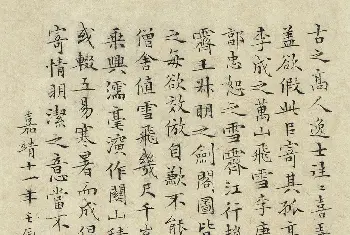 古之高人逸士往往喜弄
蓋欲假此以寄其孤高
李成之萬山飛雪李唐
郭忠恕之雪霽江行趙
霽王叔明之劍閣圖皆
之每欲效倣自歉不能
僧舍值雪飛幾尺千峰
乘興濡毫演作關山積
或輟五易寒暑而成但
寄情明潔之意當不
嘉靖十一年壬辰